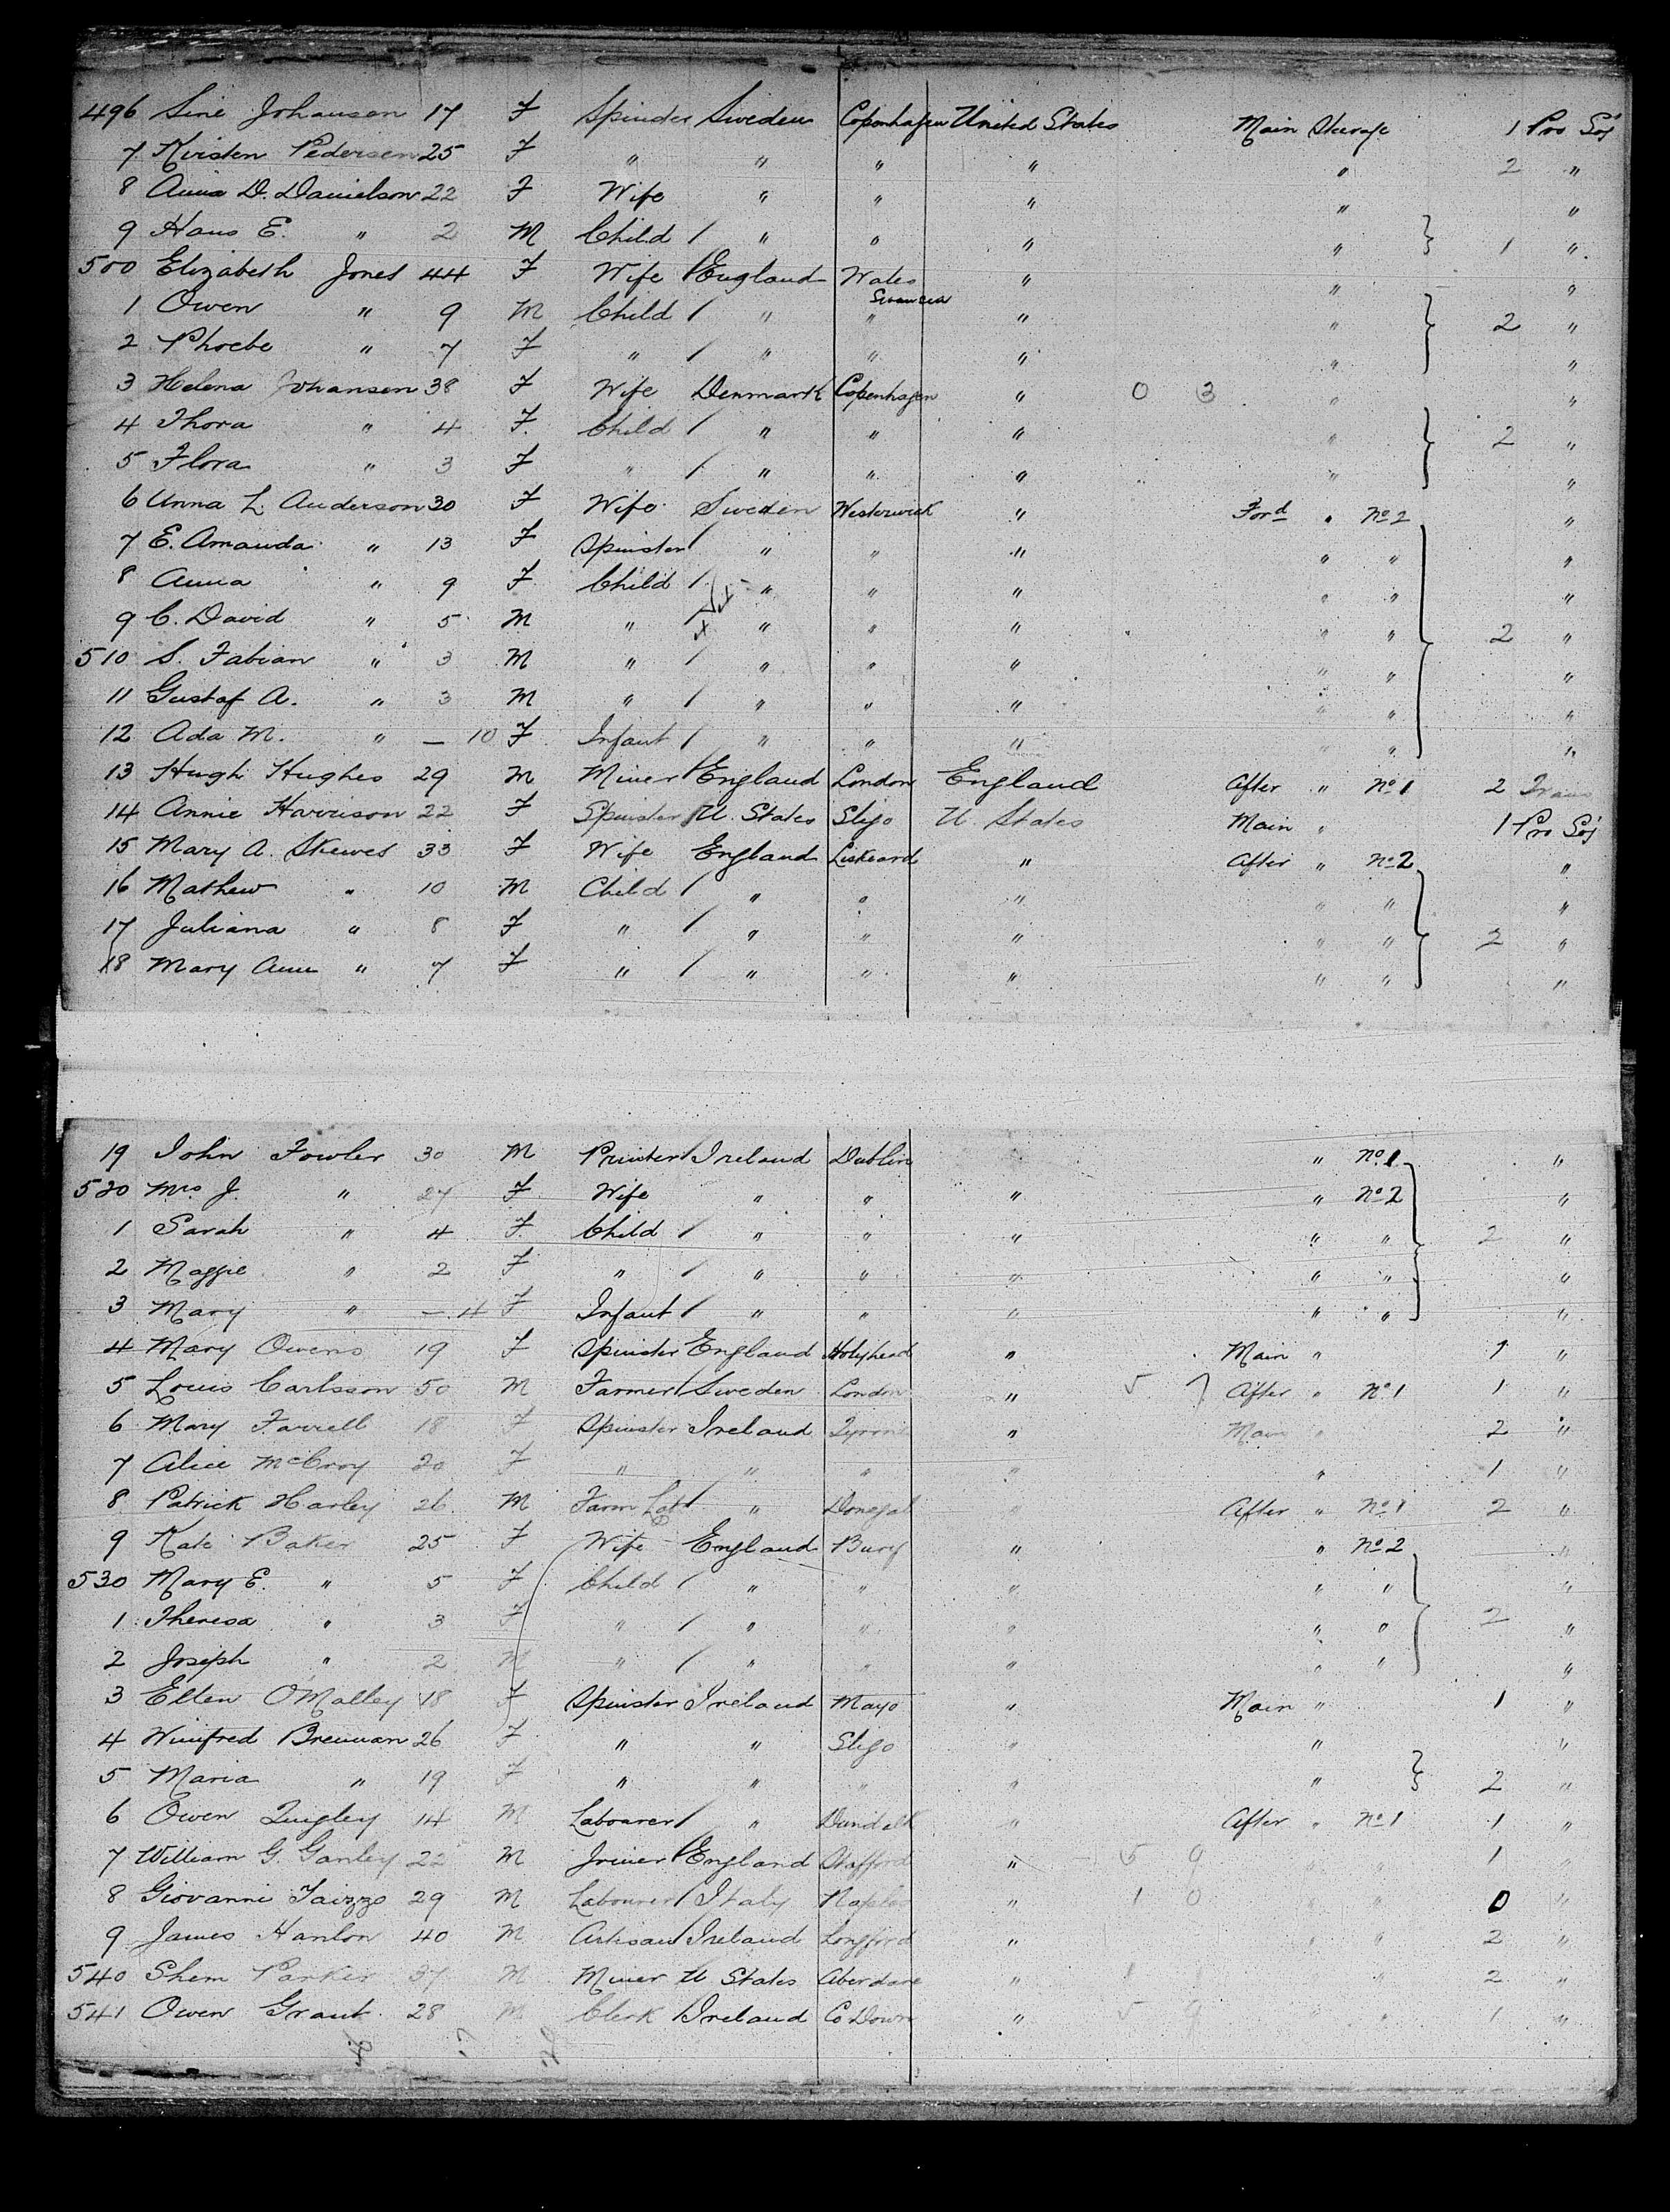 496 Sine Johansen 17 F Spinster Sweden Copenhagen United States Main Steerage 1 Pro Soj
7 Kirsten Pedersen 25 F " " " " " 2 "
8 Anna D. Danielson 22 F Wife " " " " "
9 Hans E. " 2 M Child / " " " " 1 "
500 Elizabeth Jones 44 F Wife / England Wales Swansea " " "
1 Owen " 9 M Child / " " " " 2 "
2 Phoebe " 7 F " / " " " " "
3 Helena Johansen 38 F Wife Denmark Copenhagen " 0 3 " "
4 Thora " 4 F. Child / " " " " 2 "
5 Flora " 3 F " / " " " " "
6 Anna L. Anderson 30 F Wife Sweden Westerwick " Ford " No 2 "
7 E. Amanda " 13 F Spinster / " " " " " "
8 Anna " 9 F Child / " " " " " "
9 C. David " 5 M " / " " " " " 2 "
510 S. Fabian " 3 M " / " " " " " "
11 Gustaf A. " 3 M " / " " " " " "
12 Ada M. " — 10 F Infant / " " " " " "
13 Hugh Hughes 29 M Miner / England London England After " No 1 2 Trans
14 Annie Harrison 22 F Spinster / U. States Sligo U. States Main " 1 Pro Soj
15 Mary A. Skewes 33 F Wife England Liskeard " After " No 2 "
16 Mathew " 10 M Child / " " " " " "
17 Juliana " 8 F " / " " " " " 2 "
18 Mary Ann " 7 F " / " " " " " "
19 John Fowler 30 M Printer / Ireland Dublin " No 1 "
520 Mrs J. " 27 F Wife " " " " No 2 "
1 Sarah " 4 F. Child / " " " " " 2 "
2 Maggie " 2 F " / " " " " " "
3 Mary " — 4 F Infant / " " " " " "
4 Mary Owens 19 F Spinster England Holyhead " Main " 1 "
5 Louis Carlsson 50 M Farmer / Sweden London " 5 7 After " No 1 1 "
6 Mary Farrell 18 F Spinster Ireland Tyrone " Main " 2 "
7 Alice McCroy 20 F " " " " " 1 "
8 Patrick Harley 26 M Farm Lab / " Donegal " After " No 1 2 "
9 Kate Baker 25 F Wife England Bury " " No 2 "
530 Mary E. " 5 F Child / " " " " " "
1 Theresa " 3 F " / " " " " " 2 "
2 Joseph " 2 M " / " " " " " "
3 Ellen O'Malley 18 F Spinster Ireland Mayo " Main " 1 "
4 Winifred Brennan 26 F " " Sligo " " "
5 Maria " 19 F " " " " " 2 "
6 Owen Quigley 14 M Labourer / " Dundalk " After " No 1 1 "
7 William G. Ganley 22 M Joiner / England Stafford " 5 9 " " 1 "
8 Giovanni Taizzo 29 M Labourer / Italy Naples " 1 0 " " 0 "
9 James Hanlon 40 M Artisan / Ireland Longford " " " 2 "
540 Shem Parker 37 M Miner U States Aberdare " " 2 "
541 Owen Grant 28 M Clerk / Ireland Co Down " 5 9 " 1 "